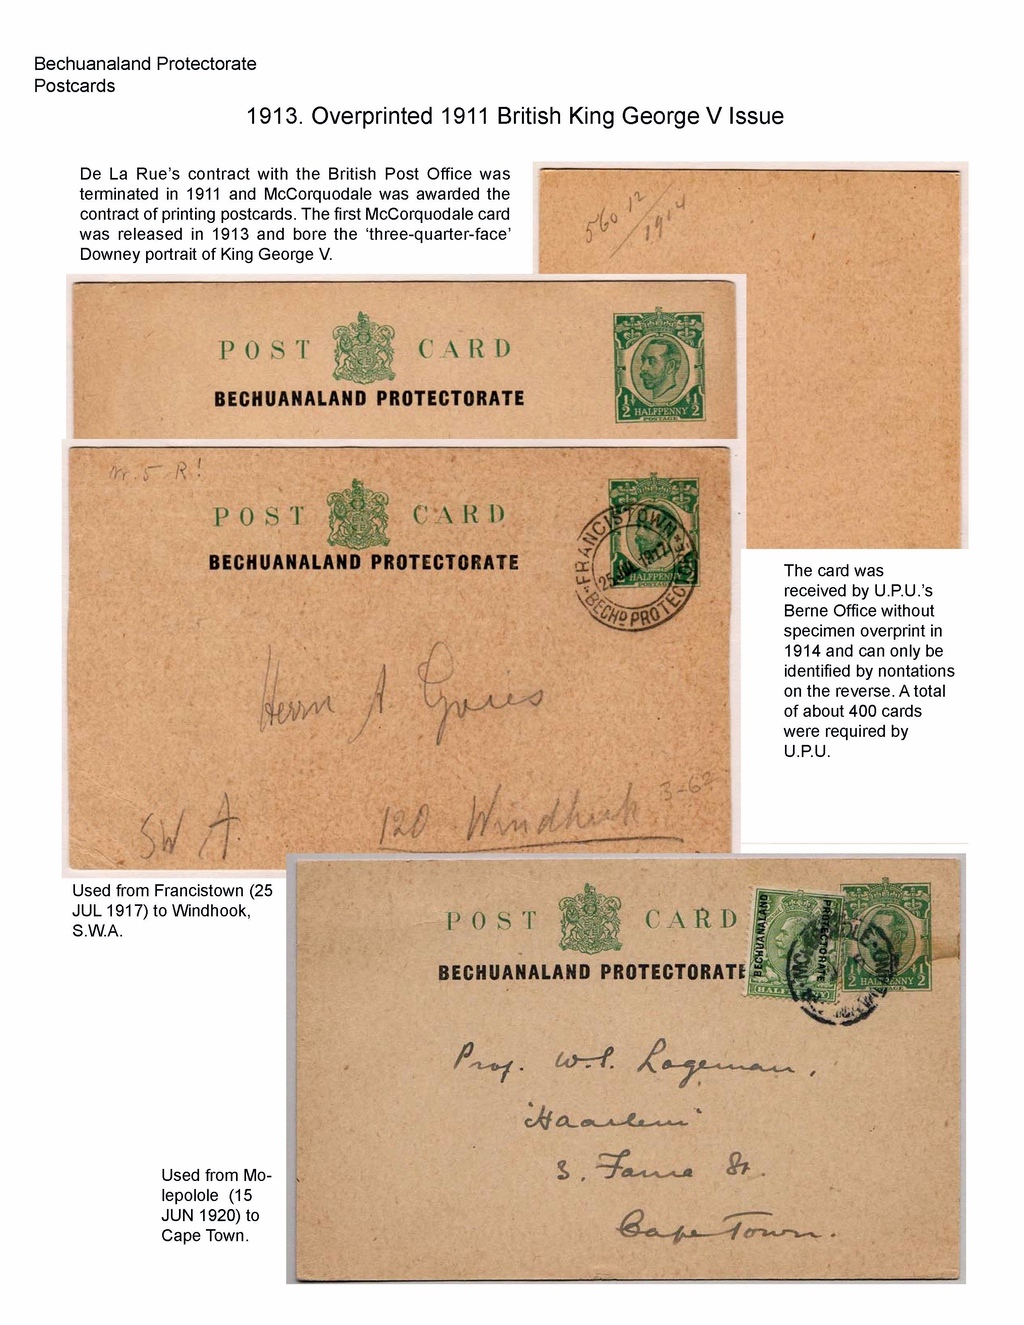 Bechuanaland Protectorate
Postcards
1913. Overprinted 1911 British King George V Issue
De La Rue's contract with the British Post Office was
terminated in 1911 and McCorquodale was awarded the
contract of printing postcards. The first McCorquodale card
was released in 1913 and bore the 'three-quarter-face'
Downey portrait of King George V.
560 12/1914
POST CARD
BECHUANALAND PROTECTORATE
1/2 HALFPENNY 1/2
POSTAGE
Nr. 5 R!
POST CARD
BECHUANALAND PROTECTORATE
FRANCISTOWN
25 JUL 1917
BECHD PROTECTORATE
HALFPENNY 2
POSTAGE
Herrn A.
3-62
SW A. 120 Windhuk
The card was
received by U.P.U.'s
Berne Office without
specimen overprint in
1914 and can only be
identified by nontations
on the reverse. A total
of about 400 cards
were required by
U.P.U.
Used from Francistown (25
JUL 1917) to Windhook,
S.W.A.
POST CARD
BECHUANALAND PROTECTORATE
BECHUANALAND
PROTECTORATE
Prof. W.S. Logeman,
"Haarlem"
3, Fawe Str.
Cape Town.
Used from Mo-
lepolole (15
JUN 1920) to
Cape Town.